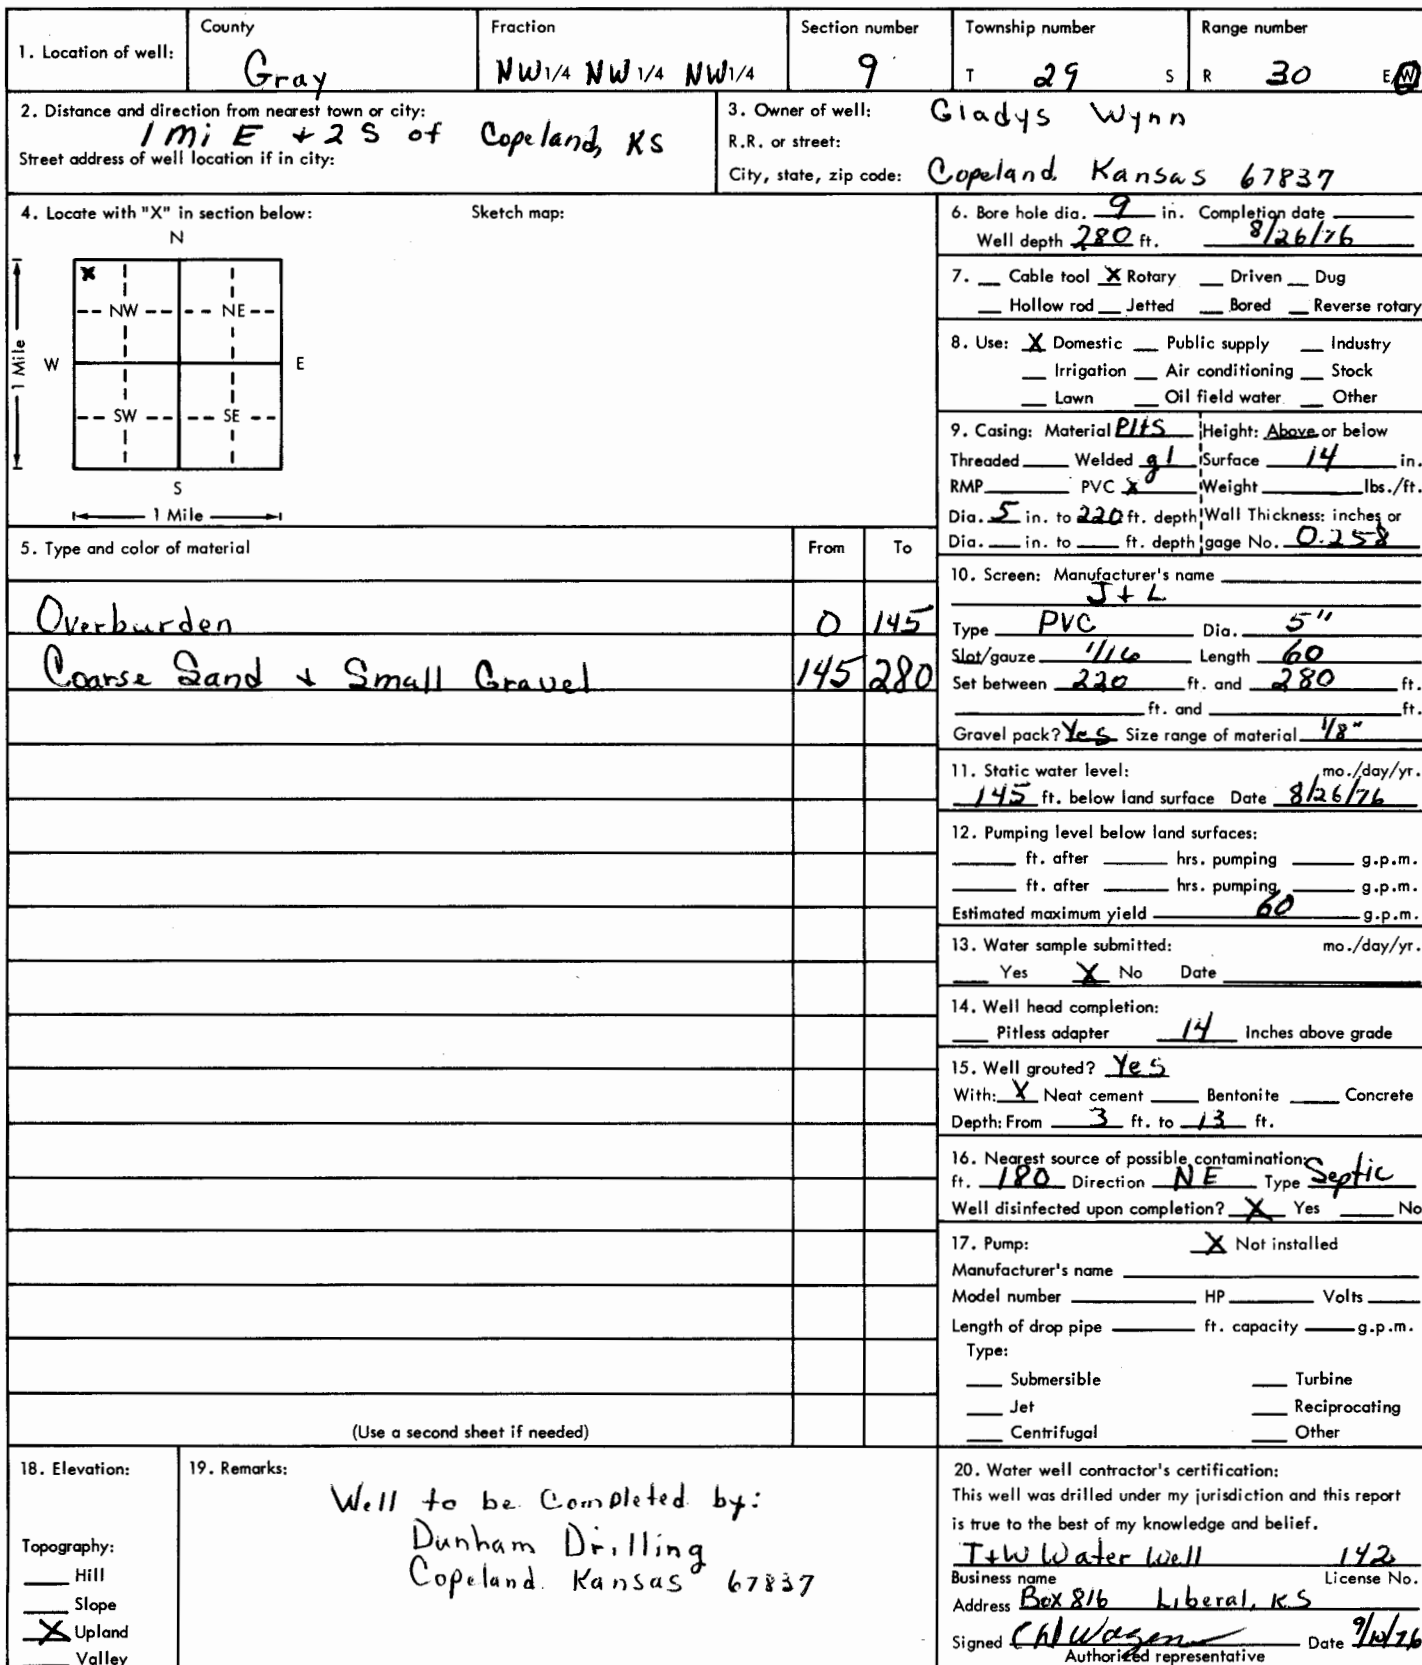 1. Location of well: County Gray Fraction NW 1/4 NW 1/4 NW 1/4 Section number 9 Township number T 29 S Range number R 30 E/W
2. Distance and direction from nearest town or city:
1 mi E + 2 S of Copeland, KS
Street address of well location if in city:
3. Owner of well: Gladys Wynn
R.R. or street:
City, state, zip code: Copeland Kansas 67837
4. Locate with "X" in section below: Sketch map:
N
X
NW NE
W E
1 Mile
SW SE
S
1 Mile
5. Type and color of material From To
Overburden 0 145
Coarse Sand + Small Gravel 145 280
(Use a second sheet if needed)
6. Bore hole dia. 9 in. Completion date
Well depth 280 ft. 8/26/76
7. Cable tool X Rotary Driven Dug
Hollow rod Jetted Bored Reverse rotary
8. Use: X Domestic Public supply Industry
Irrigation Air conditioning Stock
Lawn Oil field water Other
9. Casing: Material Height: Above or below
Threaded Welded gl Surface 14 in.
RMP PVC X Weight lbs./ft.
Dia. 5 in. to 220 ft. depth Wall Thickness: inches or
Dia. in. to ft. depth gage No. 0.258
10. Screen: Manufacturer's name
J + L
Type PVC Dia. 5"
Slot/gauze 1/16 Length 60
Set between 220 ft. and 280 ft.
ft. and ft.
Gravel pack? Yes Size range of material 1/8"
11. Static water level: mo./day/yr.
145 ft. below land surface Date 8/26/76
12. Pumping level below land surfaces:
ft. after hrs. pumping g.p.m.
ft. after hrs. pumping g.p.m.
Estimated maximum yield 60 g.p.m.
13. Water sample submitted: mo./day/yr.
Yes X No Date
14. Well head completion:
Pitless adapter 14 Inches above grade
15. Well grouted? Yes
With: X Neat cement Bentonite Concrete
Depth: From 3 ft. to 13 ft.
16. Nearest source of possible contamination:
ft. 180 Direction NE Type Septic
Well disinfected upon completion? X Yes No
17. Pump: X Not installed
Manufacturer's name
Model number HP Volts
Length of drop pipe ft. capacity g.p.m.
Type:
Submersible Turbine
Jet Reciprocating
Centrifugal Other
18. Elevation:
Topography:
Hill
Slope
X Upland
Valley
19. Remarks:
Well to be Completed by:
Dunham Drilling
Copeland Kansas 67837
20. Water well contractor's certification:
This well was drilled under my jurisdiction and this report
is true to the best of my knowledge and belief.
T+W Water Well 142
Business name License No.
Address Box 816 Liberal, KS
Signed Date 9/10/76
Authorized representative